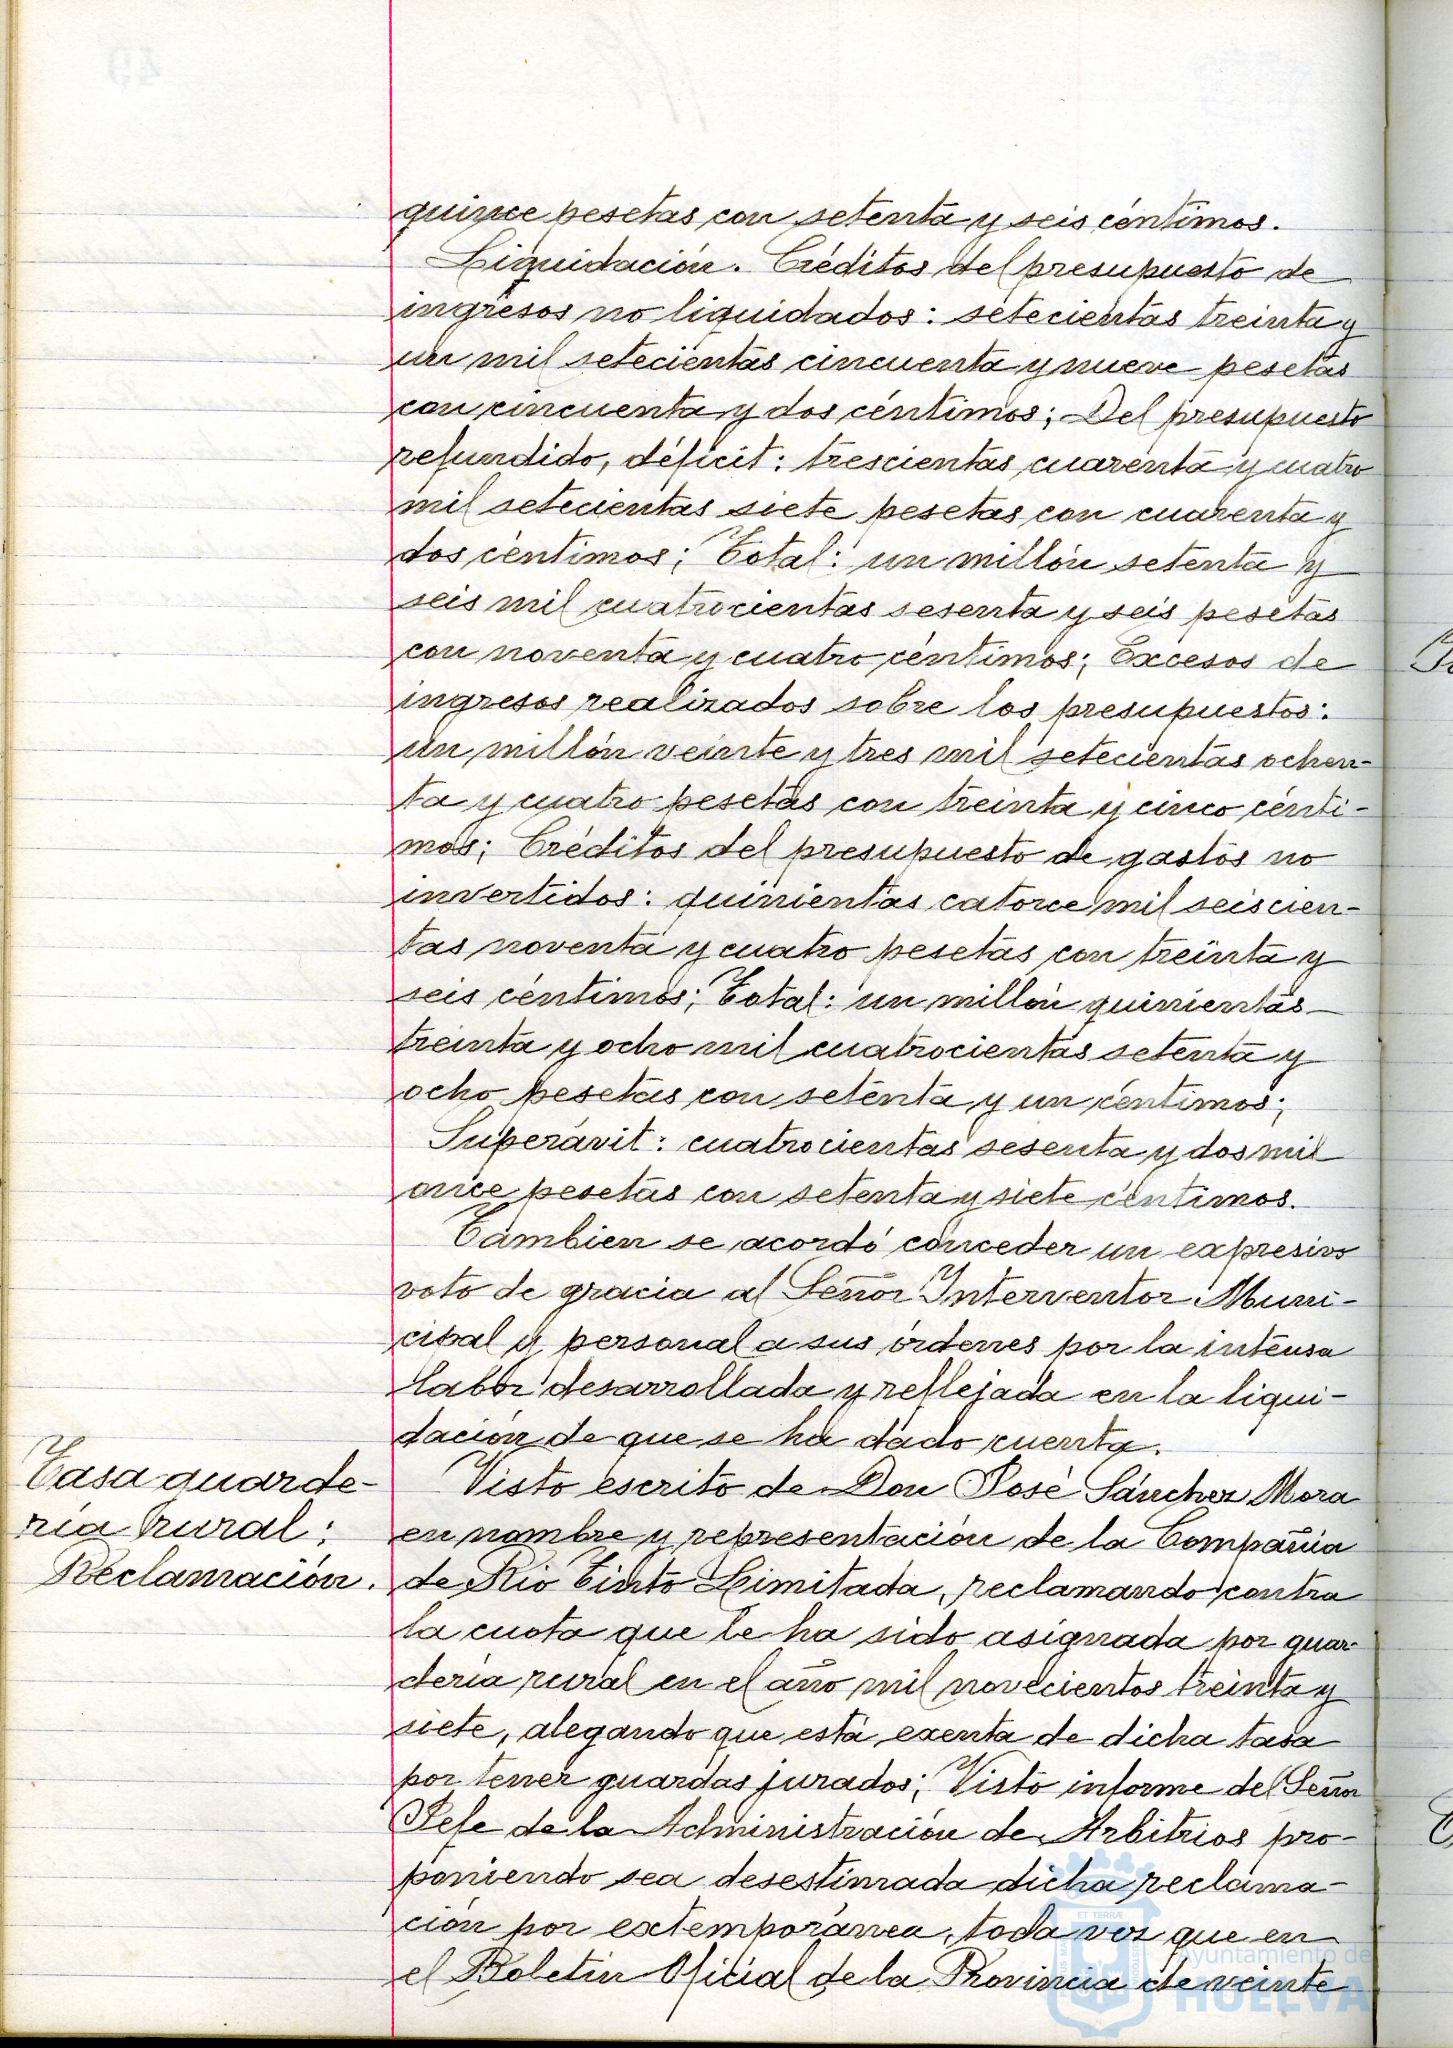 quince pesetas con setenta y seis céntimos.
Liquidación. Créditos del presupuesto de
ingresos no liquidados: setecientas treinta y
un mil setecientas cincuenta y nueve pesetas
con cincuenta y dos céntimos; Del presupuesto
refundido, déficit: trescientas cuarenta y cuatro
mil setecientas siete pesetas con cuarenta y
dos céntimos; Total: un millón setenta y
seis mil cuatrocientas sesenta y seis pesetas
con noventa y cuatro céntimos; Excesos de
ingresos realizados sobre los presupuestos:
un millón veinte y tres mil setecientas ochen-
ta y cuatro pesetas con treinta y cinco cénti-
mos; Créditos del presupuesto de gastos no
invertidos: quinientas catorce mil seiscien-
tas noventa y cuatro pesetas con treinta y
seis céntimos; Total: un millón quinientas
treinta y ocho mil cuatrocientas setenta y
ocho pesetas con setenta y un céntimos;
Superávit: cuatrocientas sesenta y dos mil
once pesetas con setenta y siete céntimos.
Tambien se acordó conceder un expresivo
voto de gracia al Señor Interventor Muni-
cipal y personal a sus órdenes por la intensa
labor desarrollada y reflejada en la liqui-
dación de que se ha dado cuenta.
Tasa guarde-
ría rural:
Reclamación.
Visto escrito de Don José Sánchez Mora
en nombre y representación de la Compañia
de Rio Tinto Limitada, reclamando contra
la cuota que le ha sido asignada por guar-
dería rural en el año mil novecientos treinta y
siete, alegando que está exenta de dicha tasa
por tener guardas jurados; Visto informe del Señor
Jefe de la Administración de Arbitrios pro-
poniendo sea desestimada dicha reclama-
ción por extemporánea, toda vez que en
el Boletin Oficial de la Provincia de veinte
ET TERRÆ
Ayuntamiento de
HUELVA